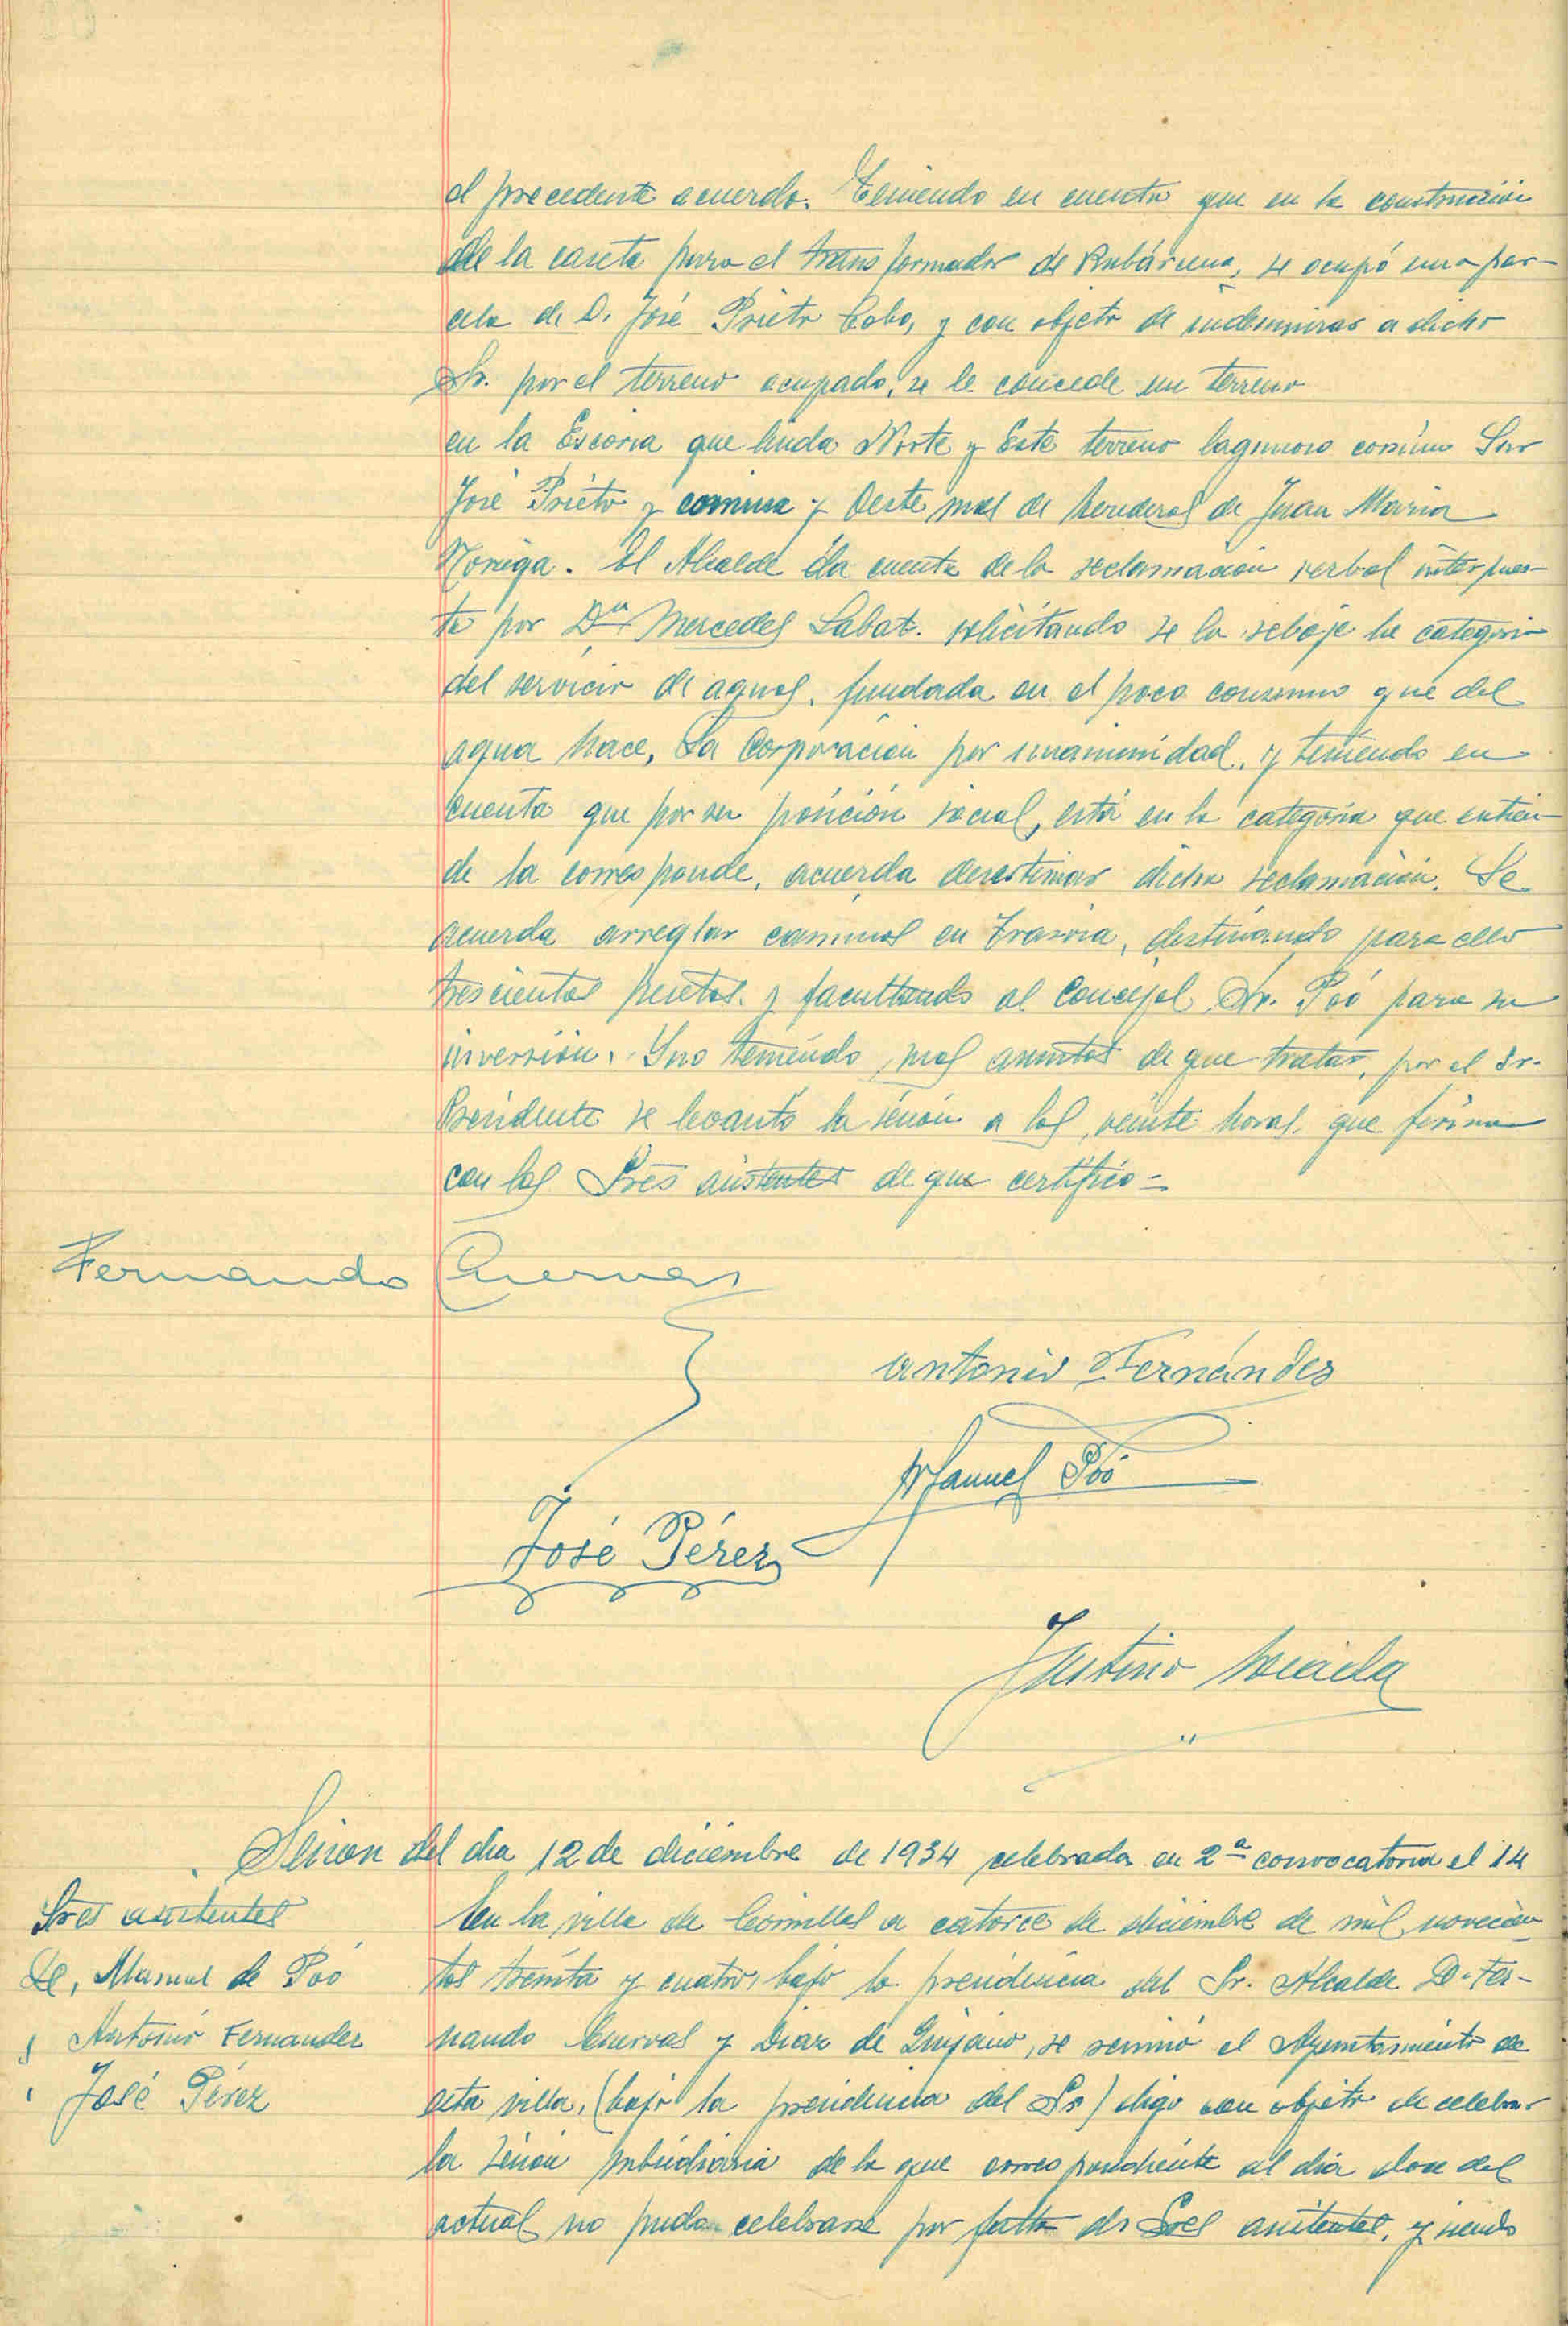 el precedente acuerdo. Teniendo en cuenta que en la construcción
de la caseta para el transformador de Rubárcena, se ocupó una par-
cela de D. José Prieto Cobo, y con objeto de indemnizar a dicho
Sr. por el terreno ocupado, se le concede un terreno
en la Escoria que linda Norte y Este terreno lagunoso común Sur
José Prieto y comun y Oeste mas de herederos de Juan Maria
Noriega. El Alcalde da cuenta de la reclamación verbal interpues-
ta por Dña Mercedes Labat. solicitando se la rebaje la categoria
del servicio de aguas, fundada en el poco consumo que del
agua hace, La Corporación por unanimidad, y teniendo en
cuenta que por su posición social, está en la categoria que entien-
de la corresponde, acuerda desestimar dicha reclamación. Se
acuerda arreglar caminos en Trasvia, destinando para ello
trescientas pesetas y facultando al Concejal Sr. Poó para su
inversión. Y no teniendo mas asuntos de que tratar, por el Sr.
Presidente se levantó la sesión a las veinte horas que firma
con los Sres asistentes de que certifico =
Fernando Cuervas
Antonio Fernández
Manuel Poó
José Pérez
Justino
Sesion del dia 12 de diciembre de 1934 celebrada en 2ª convocatoria el 14
Sres asistentes
D. Manuel de Poó
" Antonio Fernandez
" José Pérez
En la villa de Comillas a catorce de diciembre de mil novecien-
tos treinta y cuatro, bajo la presidencia del Sr. Alcalde D. Fer-
nando Cuervas y Diaz de Quijano, se reunió el Ayuntamiento de
esta villa, (bajo la presidencia del Sr) digo con objeto de celebrar
la sesión subsidiaria de la que correspondiente al dia doce del
actual no pudo celebrarse por falta de Sres asistentes, y siendo